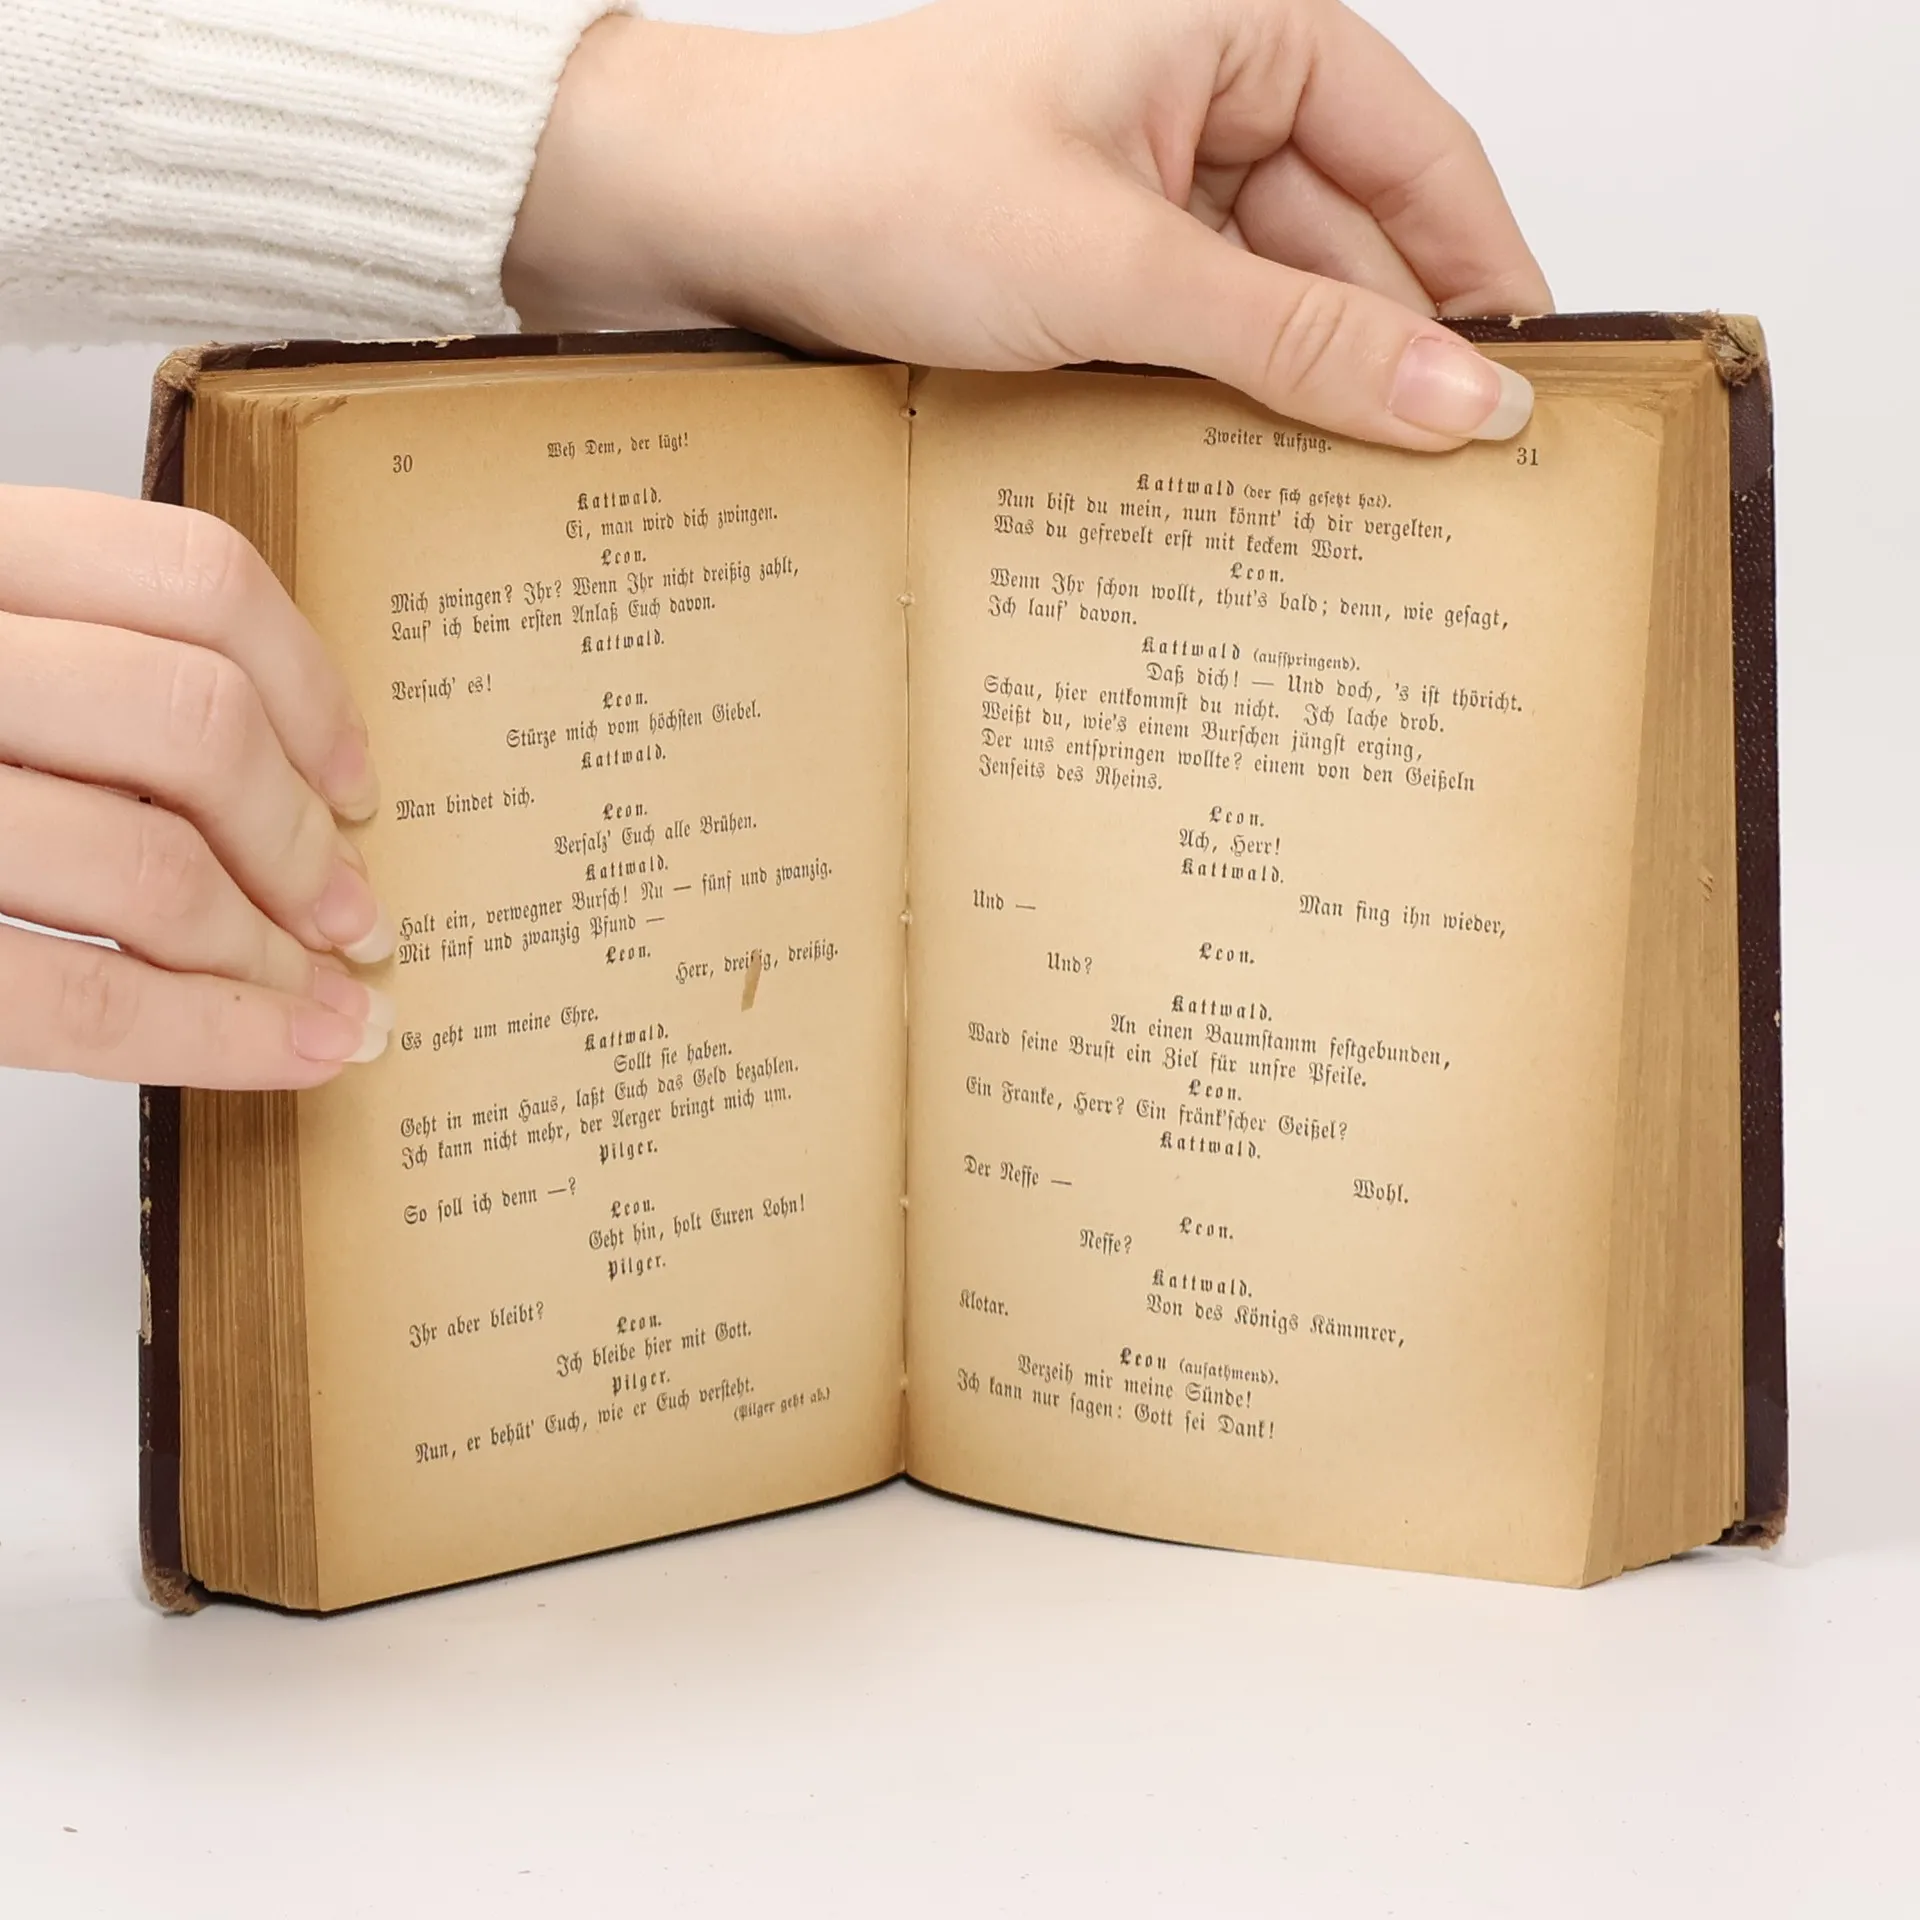 30
Weh Dem, der lügt!
Kattwald.
Ei, man wird dich zwingen.
Leon.
Mich zwingen? Ihr? Wenn Ihr nicht dreißig zahlt,
Lauf' ich beim erſten Anlaß Euch davon.
Kattwald.
Verſuch' es!
Leon.
Stürze mich vom höchſten Giebel.
Kattwald.
Man bindet dich.
Leon.
Verſalz' Euch alle Brühen.
Kattwald.
Halt ein, verwegner Burſch! Nu — fünf und zwanzig.
Mit fünf und zwanzig Pfund —
Leon.
Herr, dreißig, dreißig.
Es geht um meine Ehre.
Kattwald.
Sollt ſie haben.
Geht in mein Haus, laßt Euch das Geld bezahlen.
Ich kann nicht mehr, der Aerger bringt mich um.
Pilger.
So ſoll ich denn —?
Leon.
Geht hin, holt Euren Lohn!
Pilger.
Ihr aber bleibt?
Leon.
Ich bleibe hier mit Gott.
Pilger.
Nun, er behüt' Euch, wie er Euch verſteht.
(Pilger geht ab.)
Zweiter Aufzug.
31
Kattwald (der ſich geſetzt hat).
Nun biſt du mein, nun könnt' ich dir vergelten,
Was du gefrevelt erſt mit keckem Wort.
Leon.
Wenn Ihr ſchon wollt, thut's bald; denn, wie geſagt,
Ich lauf' davon.
Kattwald (aufſpringend).
Daß dich! — Und doch, 's iſt thöricht.
Schau, hier entkommſt du nicht. Ich lache drob.
Weißt du, wie's einem Burſchen jüngſt erging,
Der uns entſpringen wollte? einem von den Geißeln
Jenſeits des Rheins.
Leon.
Ach, Herr!
Kattwald.
Man fing ihn wieder,
Und —
Leon.
Und?
Kattwald.
An einen Baumſtamm feſtgebunden,
Ward ſeine Bruſt ein Ziel für unſre Pfeile.
Leon.
Ein Franke, Herr? Ein fränk'ſcher Geißel?
Kattwald.
Wohl.
Der Neffe —
Leon.
Neffe?
Kattwald.
Von des Königs Kämmrer,
Klotar.
Leon (aufathmend).
Verzeih mir meine Sünde!
Ich kann nur ſagen: Gott ſei Dank!